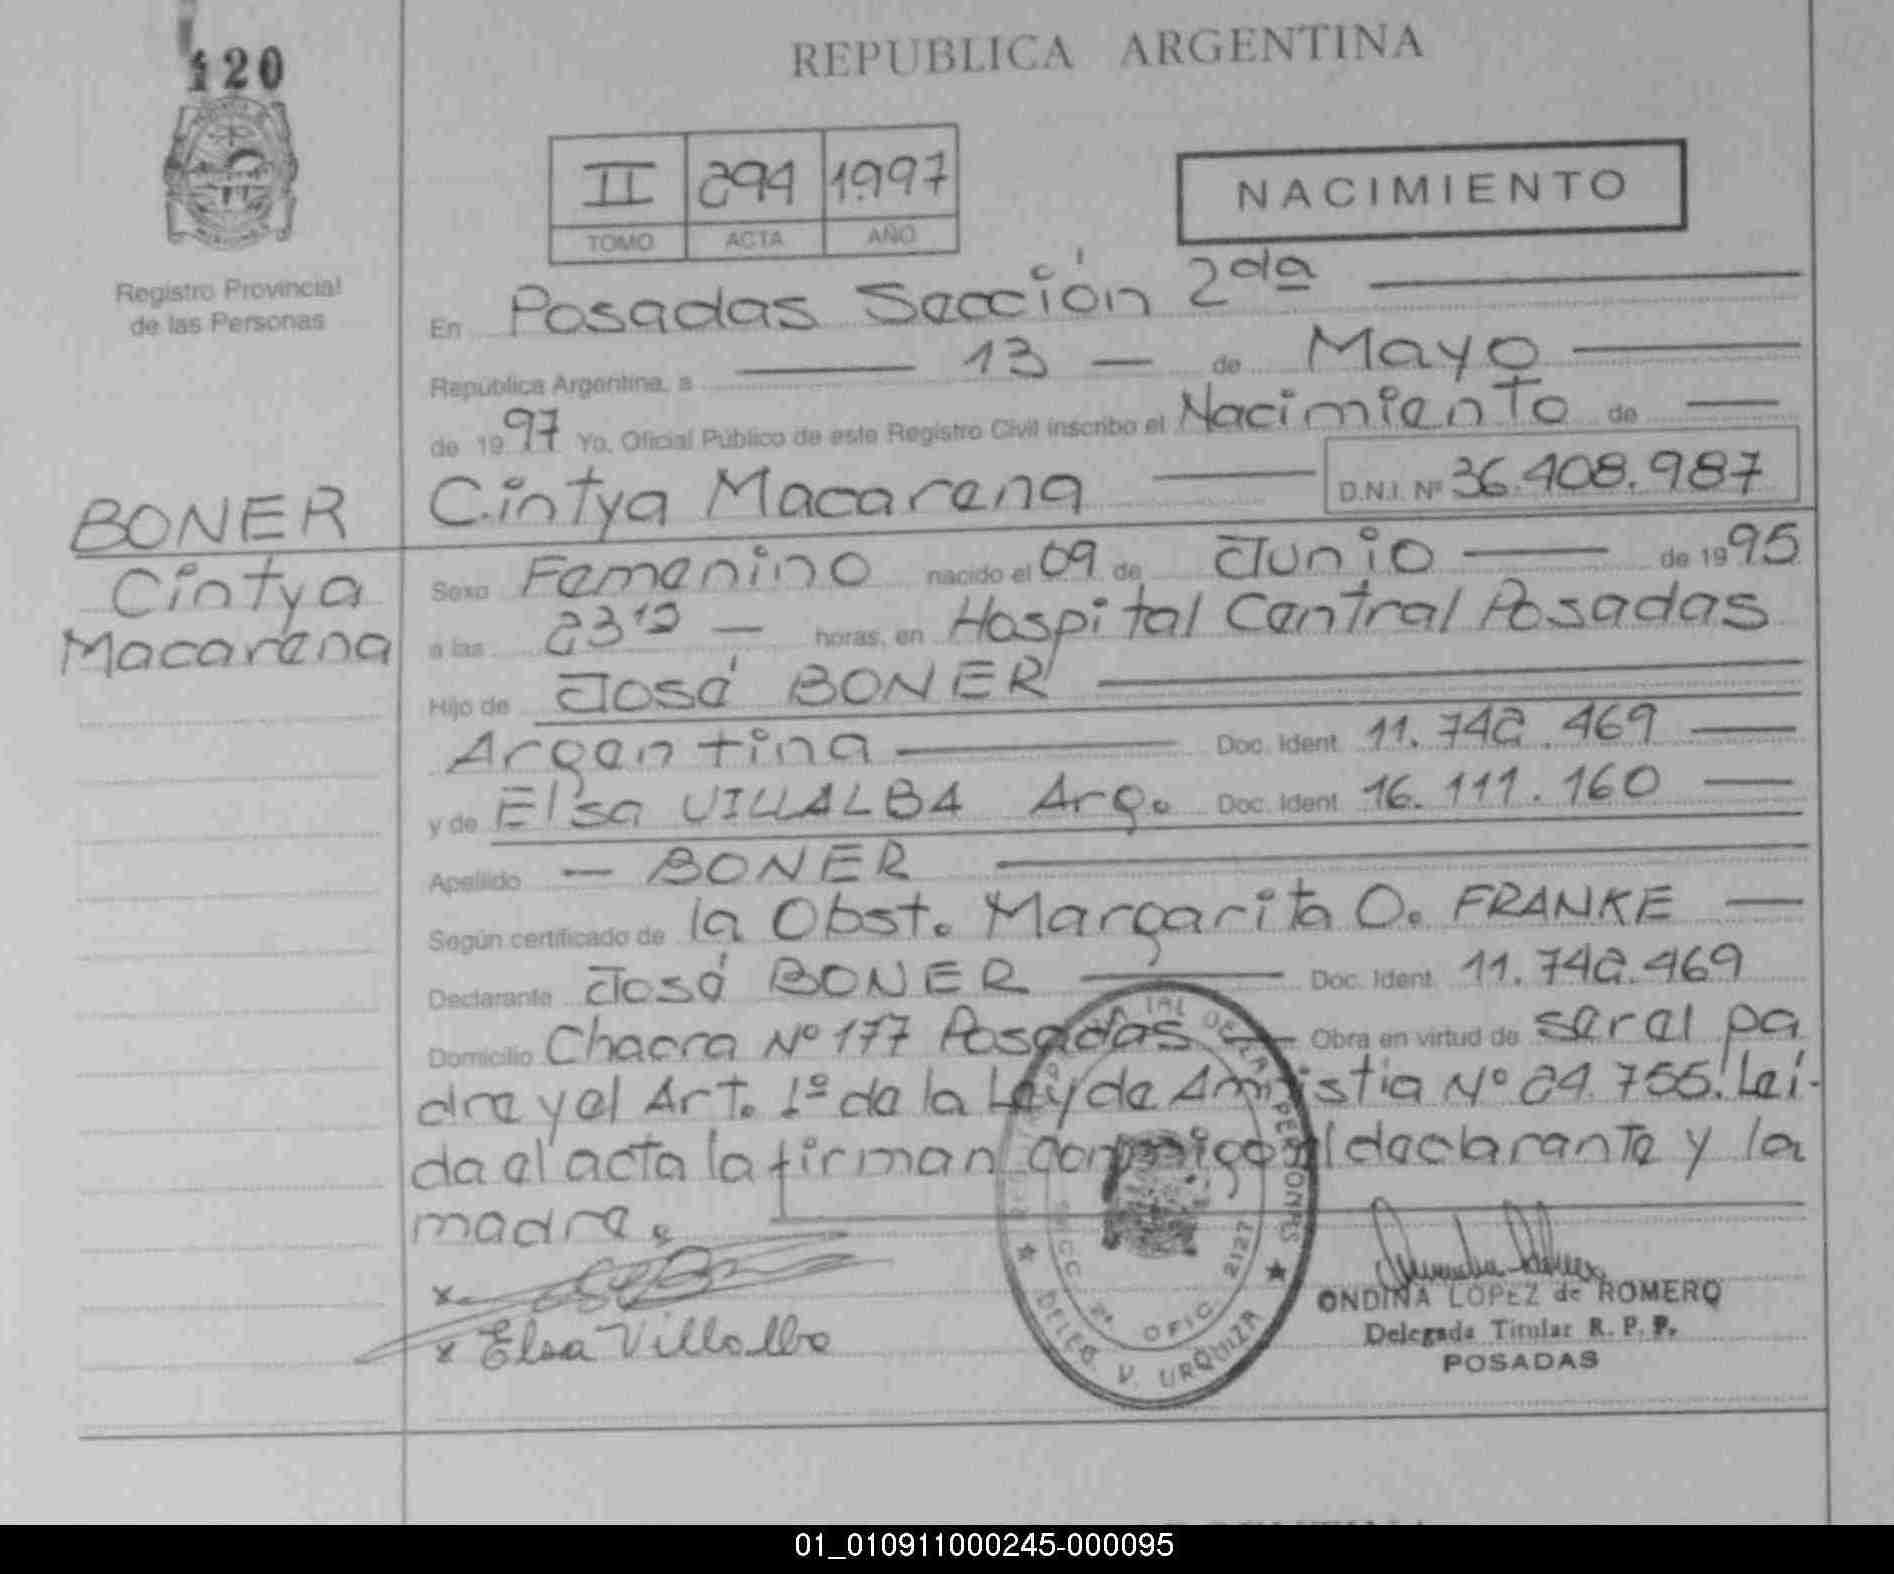 120
REPUBLICA ARGENTINA
II 294 1.997
TOMO ACTA AÑO
NACIMIENTO
Registro Provincial
de las Personas
En Posadas Sección 2da
República Argentina, a 13 de Mayo
de 1997 Yo, Oficial Público de este Registro Civil inscribo el Nacimiento de
Cintya Macarena D.N.I. Nº 36.408.987
BONER
Cintya
Macarena
Sexo Femenino nacido el 09 de Junio de 1995
a las 23 10 horas, en Hospital Central Posadas
Hijo de José BONER
Argentina Doc. Ident 11.742.469
y de Elsa VILLALBA Arg. Doc. Ident 16.111.160
Apellido BONER
Según certificado de la Obst. Margarita O. FRANKE
Declarante José BONER Doc. Ident. 11.742.469
Domicilio Chacra Nº 177 Posadas Obra en virtud de ser el pa
dre y el Art. 1º de la Ley de Amnistia Nº 24.755. Leí-
da el acta la firman conmigo el declarante y la
madre.
x
x Elsa Villalba
DE LAS PERSONAS
SECC 2ª OFIC 2127
DELEG. V. URQUIZA
ONDINA LOPEZ de ROMERO
Delegada Titular R. P. P.
POSADAS
01_010911000245-000095